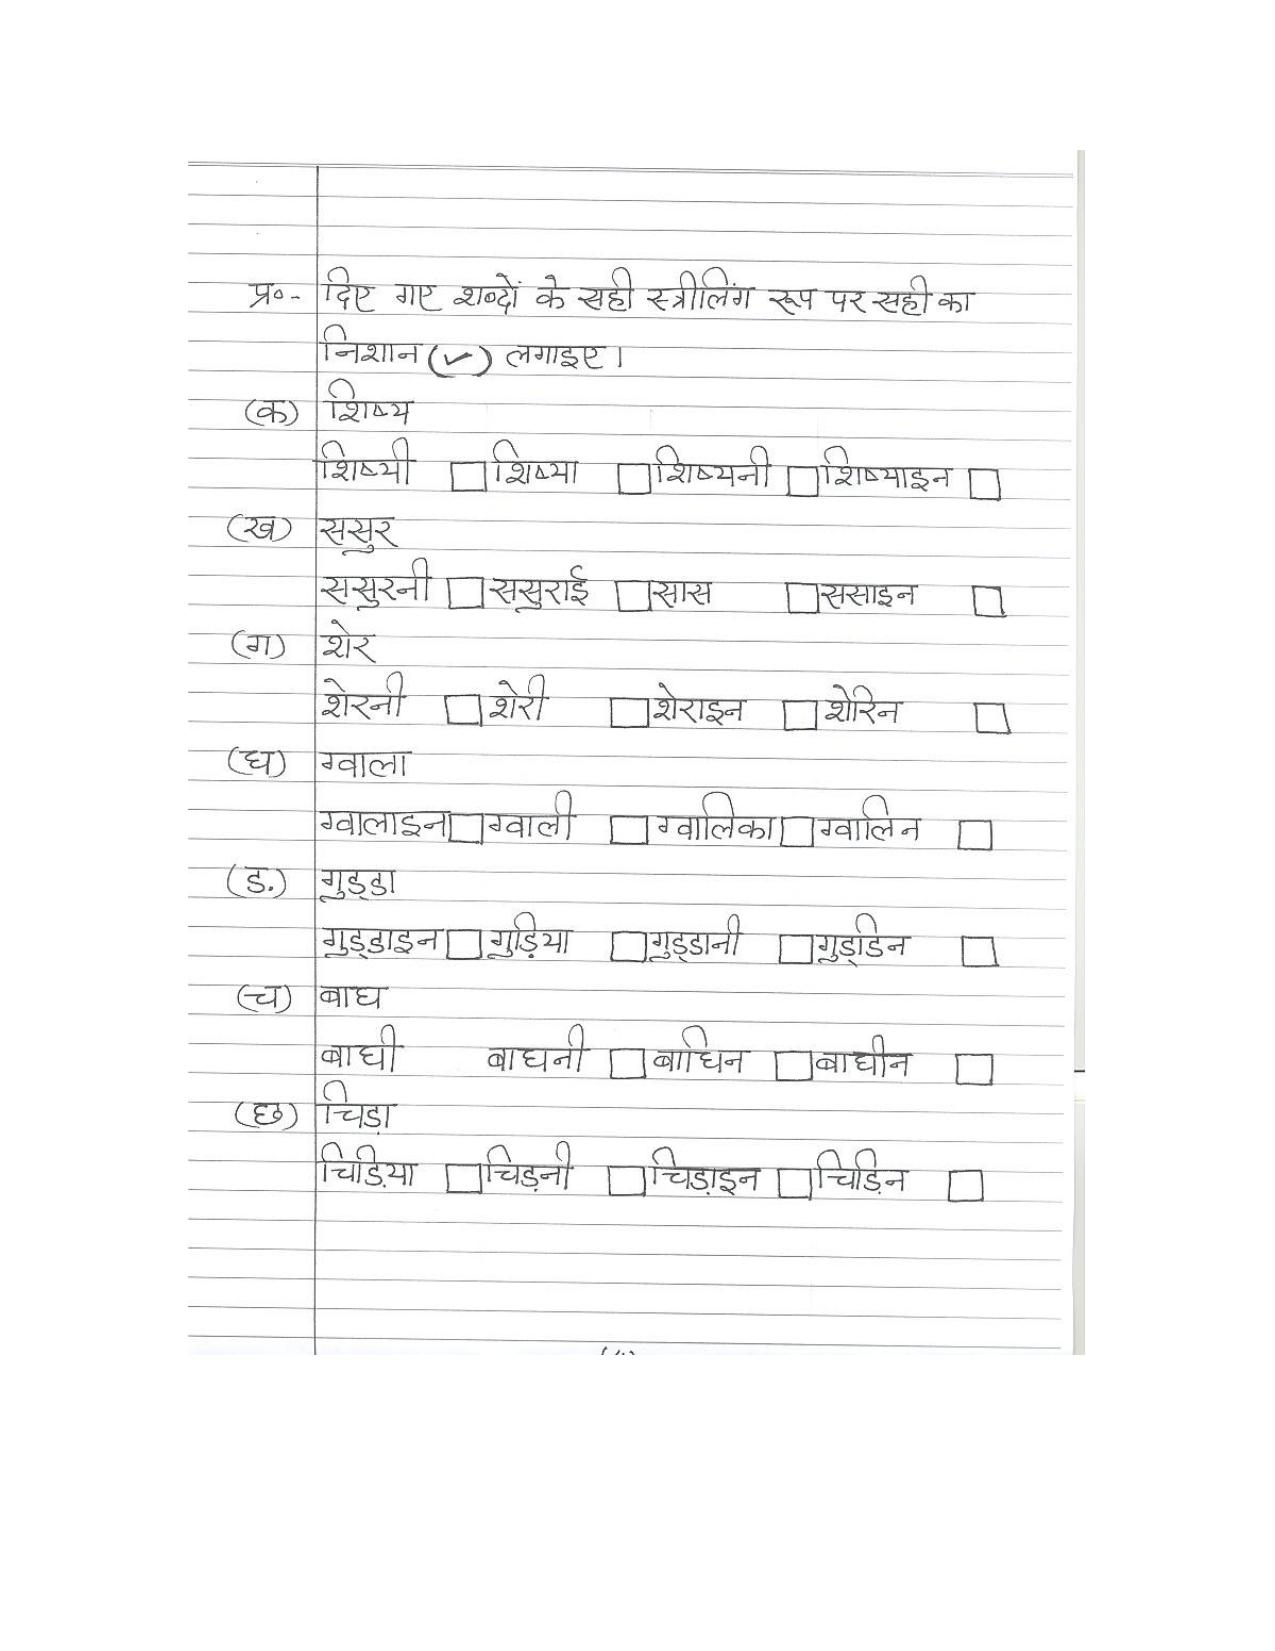 प्र०- दिए गए शब्दों के सही स्त्रीलिंग रूप पर सही का
निशान (✓) लगाइए।
(क) शिष्य
शिष्यी □ शिष्या □ शिष्यनी □ शिष्याइन □
(ख) ससुर
ससुरनी □ ससुराई □ सास □ ससाइन □
(ग) शेर
शेरनी □ शेरी □ शेराइन □ शेरिन □
(घ) ग्वाला
ग्वालाइन □ ग्वाली □ ग्वालिका □ ग्वालिन □
(ड.) गुड्डा
गुड्डाइन □ गुड़िया □ गुड्डानी □ गुड्डिन □
(च) बाघ
बाघी बाघनी □ बाघिन □ बाघीन □
(छ) चिड़ा
चिड़िया □ चिड़नी □ चिड़ाइन □ चिड़िन □